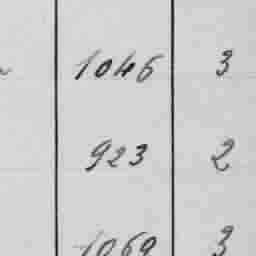 1046 3
923 2
1069 3